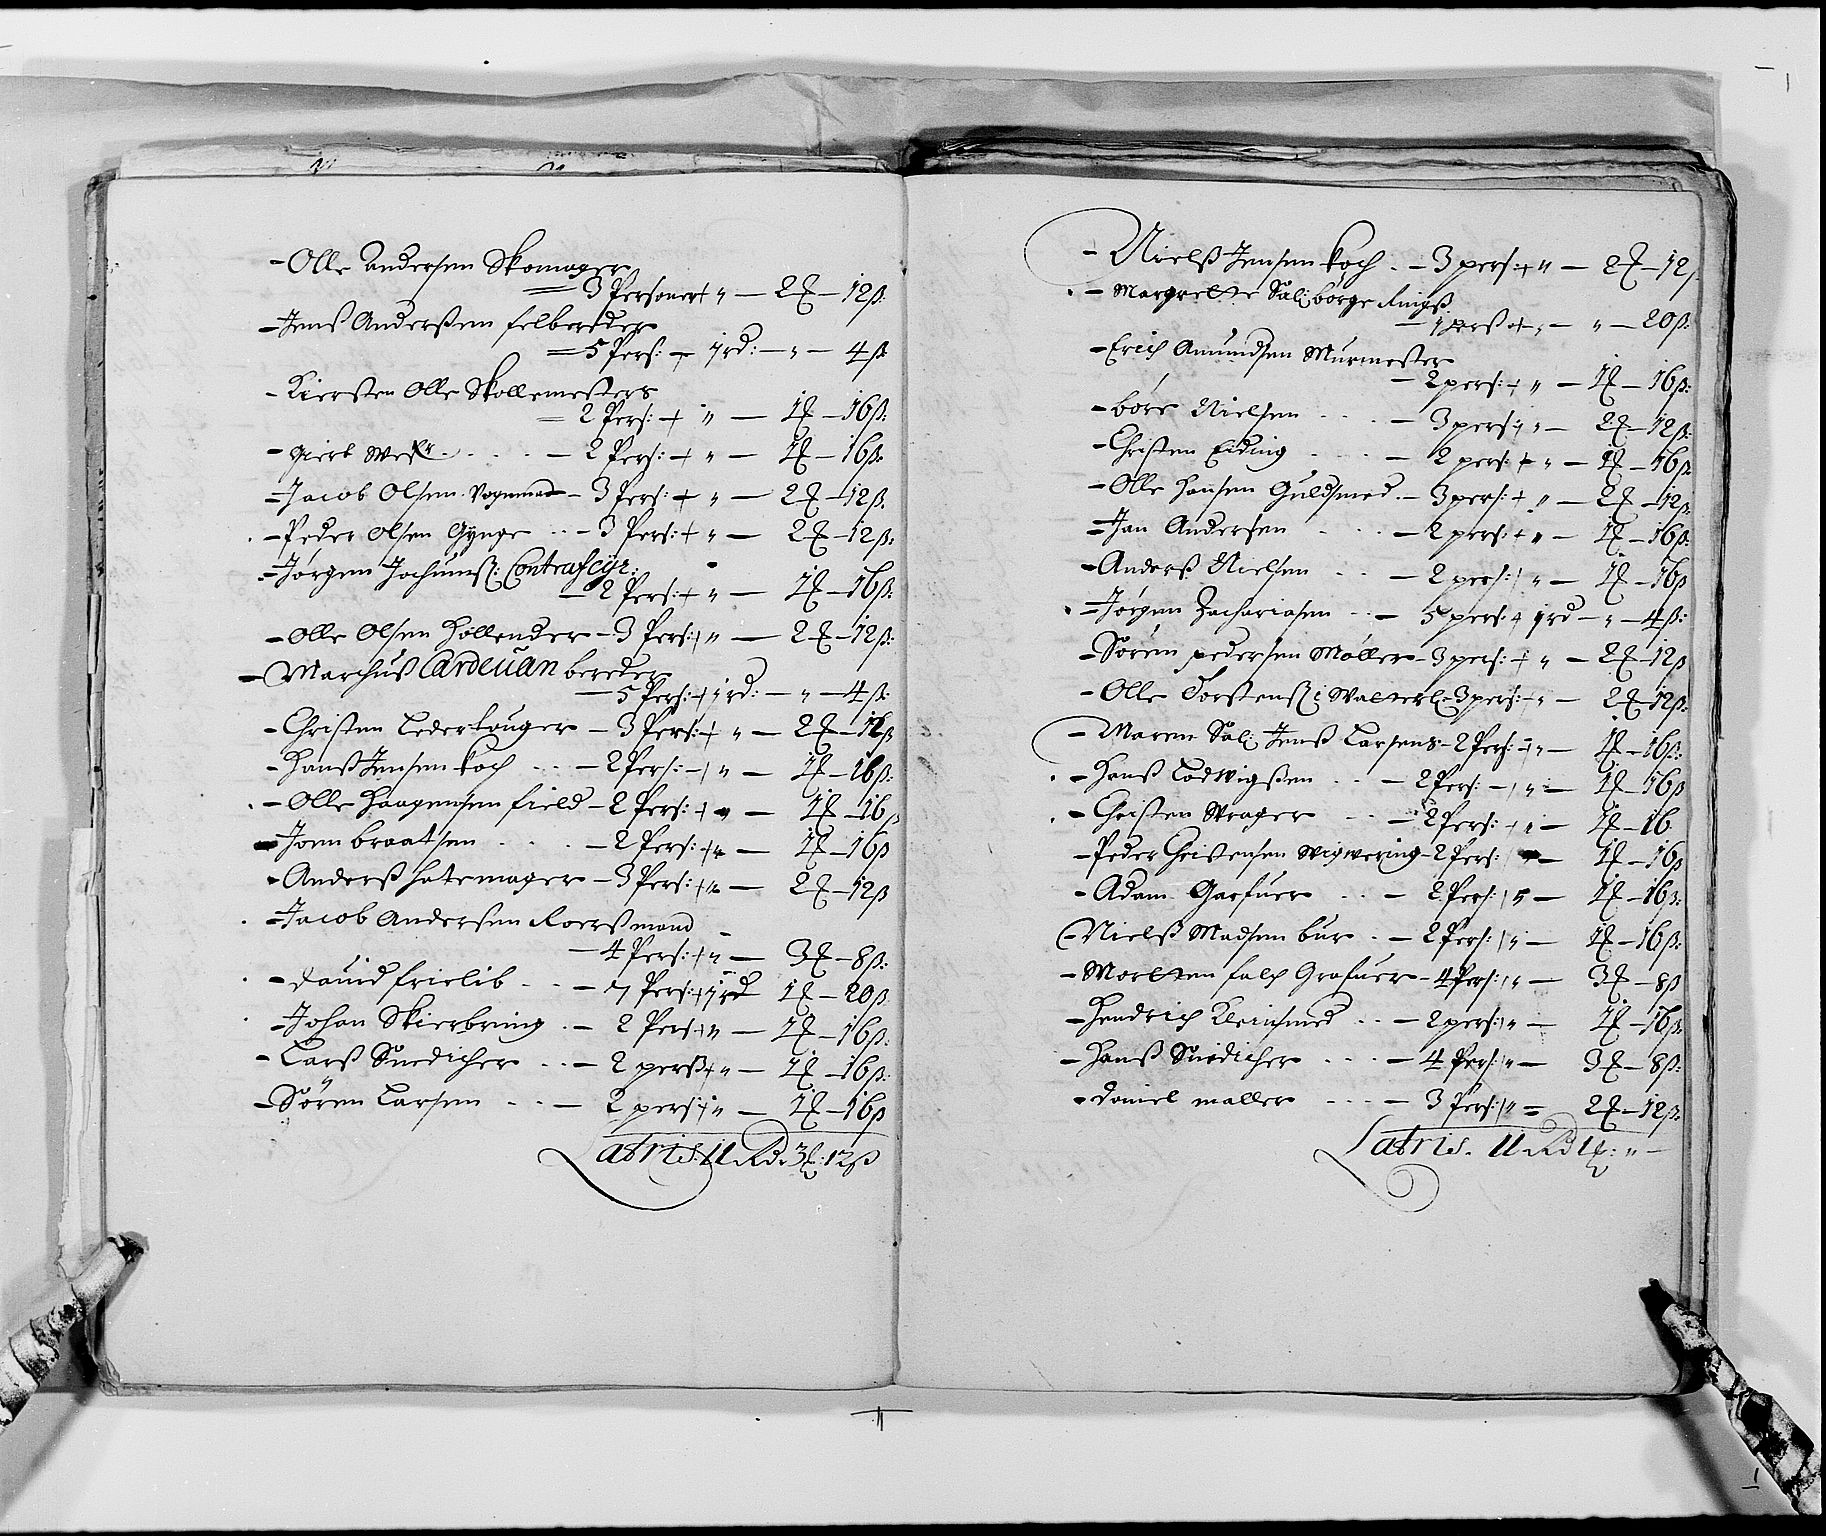 - Olle Andersen Skomager
= 3 Personer + " — 2 ℳ — 12 ß:
- Jens Anderßen felbereder
= 5 Pers: + 1 rd: — " — 4 ß
- Kiersten Olle Skollemesters
= 2 Pers: + " — 1 ℳ — 16 ß:
- Giert . . . . — 2 Pers: + " — 1 ℳ — 16 ß:
- Jacob Olsen Vognmand — 3 Pers: + " — 2 ℳ — 12 ß:
- Peder Olsen Gynge . . — 3 Pers: + " — 2 ℳ — 12 ß:
- Jørgen Jochumß: Contrafeiyr:
— 2 Pers: + " — 1 ℳ — 16 ß:
- Olle Olsen Hollender — 3 Pers: + " — 2 ℳ — 12 ß:
- Marchuß Carduan bereder
— 5 Pers: + 1 rd: — " — 4 ß:
- Christen Ledertouger — 3 Pers: + " — 2 ℳ — 12 ß
- Hanß Jensen Koch . . . — 2 Pers: + " — 1 ℳ — 16 ß:
- Olle Haagensen field — 2 Pers: + " — 1 ℳ — 16 ß
- Joen braatsen . . . . — 2 Pers: + " — 1 ℳ — 16 ß
- Anderß Hatemager — 3 Pers: + " — 2 ℳ — 12 ß
- Jacob Andersen Roerßmand
— 4 Pers: + " — 3 ℳ — 8 ß:
- Dauid frielib . . . — 7 Pers: + 1 rd 1 ℳ — 20 ß
- Johan Skierbring . — 2 Pers + " — 1 ℳ — 16 ß:
- Larß Snedicher . . . — 2 perß + " — 1 ℳ — 16 ß:
- Sören Larsen . . . — 2 pers: + " — 1 ℳ — 16 ß
Latris: 11 Rd: 3 ℳ: 12 ß
- Nielß Jensen Koch . — 3 pers: + " — 2 ℳ — 12
- Margrette Sal: børge Ringß
— 1 perß + " — " — 20 ß:
- Erich Amundsen Murmester
— 2 pers: + " — 1 ℳ — 16 ß:
- böre Nielsen . . . — 3 pers: + " — 2 ℳ — 12 ß:
- Christen Eiding . . . . — 2 pers: + " — 1 ℳ — 16 ß
- Olle Hansen Guldsmed . — 3 pers: + " — 2 ℳ — 12 ß
- Jan Andersen . . . — 2 pers: + " — 1 ℳ — 16 ß:
- Anderß Nielsen . . . — 2 pers: + " — 1 ℳ — 16 ß
- Jørgen Zachariasen . . — 5 pers: + 1 rd — " — 4 ß:
- Sören pedersen Møller — 3 pers: + " — 2 ℳ — 12 ß
- Olle Torstenß: i 3 pers: + " — 2 ℳ — 12 ß:
- Maren Sal: Jenß Larsens — 2 Pers: + " — 1 ℳ — 16 ß:
- Hanß Lodwigßen . . . — 2 Pers: + " — 1 ℳ — 16 ß
- Christen Wrager . . . — 2 Pers: + " — 1 ℳ — 16
- Peder Christensen — 2 Pers: + " — 1 ℳ — 16 ß
- Adam Garfuer . . . — 2 Pers: + " — 1 ℳ — 16 ß:
- Nielß Madsen bur . — 2 Pers: + " — 1 ℳ — 16 ß:
- Morten falch Grafuer — 4 Pers: + " — 3 ℳ — 8 ß
- Hendrich Kleinsmed . . — 2 pers: + " — 1 ℳ — 16 ß:
- Hanß Snedicher . . . . — 4 Pers: + " — 3 ℳ — 8 ß:
- Daniel maller . . . . — 3 Pers: + " = 2 ℳ — 12 ß:
Latris. 11 Rd 1 ℳ: " —